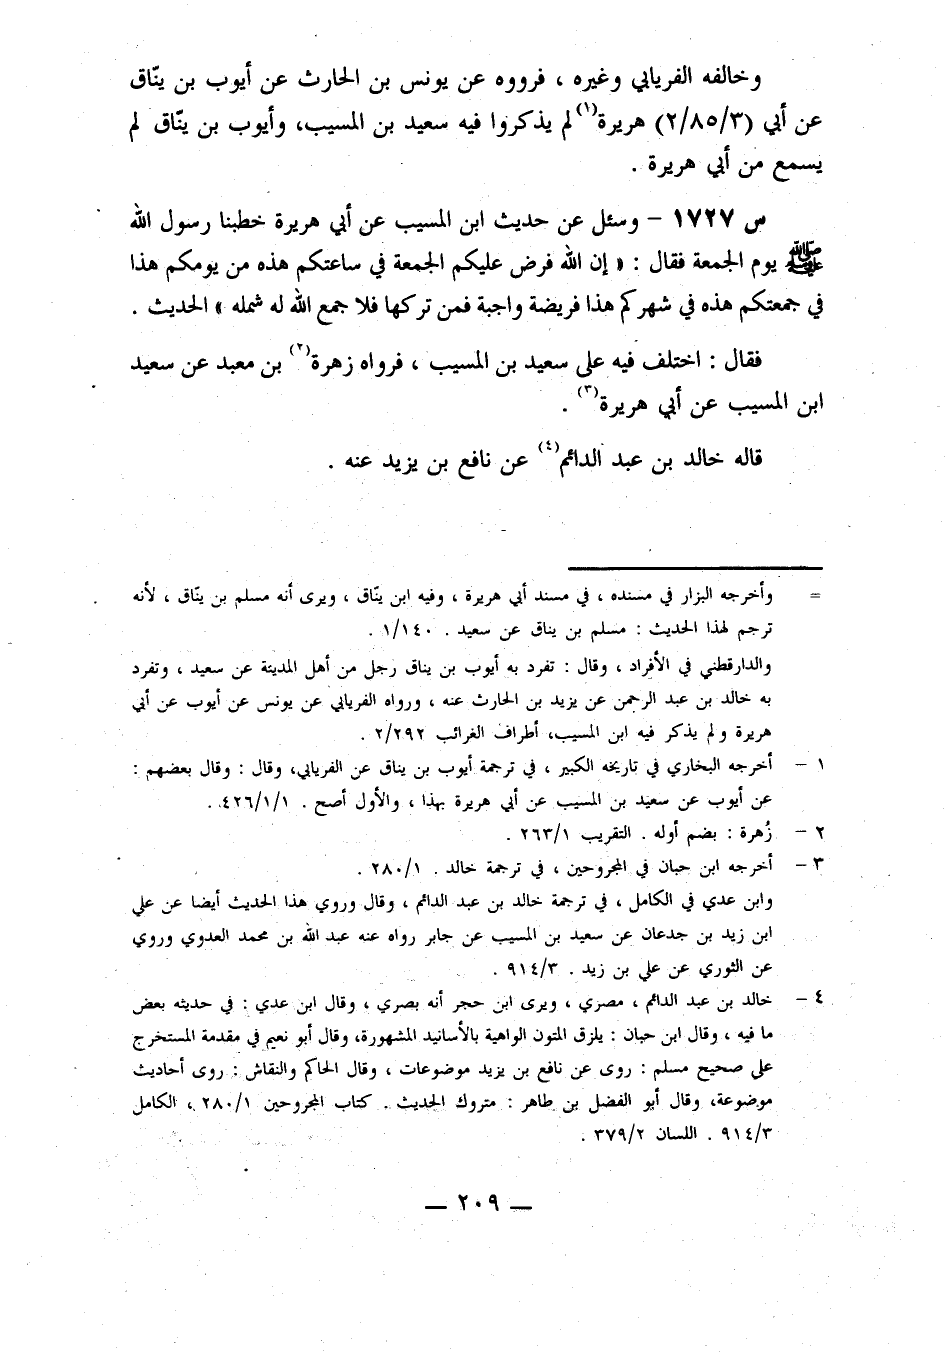 وخالفه الفريابي وغيره ، فرووه عن يونس بن الحارث عن أيوب بن ينّاق
عن أبي (٢/٨٥/٣) هريرة(١) لم يذكروا فيه سعيد بن المسيب، وأيوب بن ينّاق لم
يسمع من أبي هريرة .
س ١٧٢٧ – وسئل عن حديث ابن المسيب عن أبي هريرة خطبنا رسول الله
ﷺ يوم الجمعة فقال : « إن الله فرض عليكم الجمعة في ساعتكم هذه من يومكم هذا
في جمعتكم هذه في شهركم هذا فريضة واجبة فمن تركها فلا جمع الله له شمله » الحديث .
فقال : اختلف فيه على سعيد بن المسيب ، فرواه زهرة(٢) بن معبد عن سعيد
ابن المسيب عن أبي هريرة(٣) .
قاله خالد بن عبد الدائم(٤) عن نافع بن يزيد عنه .
= وأخرجه البزار في مسنده ، في مسند أبي هريرة ، وفيه ابن ينّاق ، ويرى أنه مسلم بن ينّاق ، لأنه
ترجم لهذا الحديث : مسلم بن يناق عن سعيد . ١/١٤٠ .
والدارقطني في الأفراد ، وقال : تفرد به أيوب بن يناق رجل من أهل المدينة عن سعيد ، وتفرد
به خالد بن عبد الرحمن عن يزيد بن الحارث عنه ، ورواه الفريابي عن يونس عن أيوب عن أبي
هريرة ولم يذكر فيه ابن المسيب، أطراف الغرائب ٢/٢٩٢ .
١ – أخرجه البخاري في تاريخه الكبير ، في ترجمة أيوب بن يناق عن الفريابي، وقال : وقال بعضهم :
عن أيوب عن سعيد بن المسيب عن أبي هريرة بهذا ، والأول أصح . ٤٢٦/١/١ .
٢ – زُهرة : بضم أوله . التقريب ٢٦٣/١ .
٣ – أخرجه ابن حبان في المجروحين ، في ترجمة خالد . ٢٨٠/١ .
وابن عدي في الكامل ، في ترجمة خالد بن عبد الدائم ، وقال وروي هذا الحديث أيضا عن علي
ابن زيد بن جدعان عن سعيد بن المسيب عن جابر رواه عنه عبد الله بن محمد العدوي وروي
عن الثوري عن علي بن زيد . ٩١٤/٣ .
٤ – خالد بن عبد الدائم ، مصري ، ويرى ابن حجر أنه بصري ، وقال ابن عدي : في حديثه بعض
ما فيه ، وقال ابن حبان : يلزق المتون الواهية بالأسانيد المشهورة، وقال أبو نعيم في مقدمة المستخرج
على صحيح مسلم : روى عن نافع بن يزيد موضوعات ، وقال الحاكم والنقاش : روى أحاديث
موضوعة، وقال أبو الفضل بن طاهر : متروك الحديث . كتاب المجروحين ٢٨٠/١ ، الكامل
٩١٤/٣ . اللسان ٣٧٩/٢ .
— ٢٠٩ —